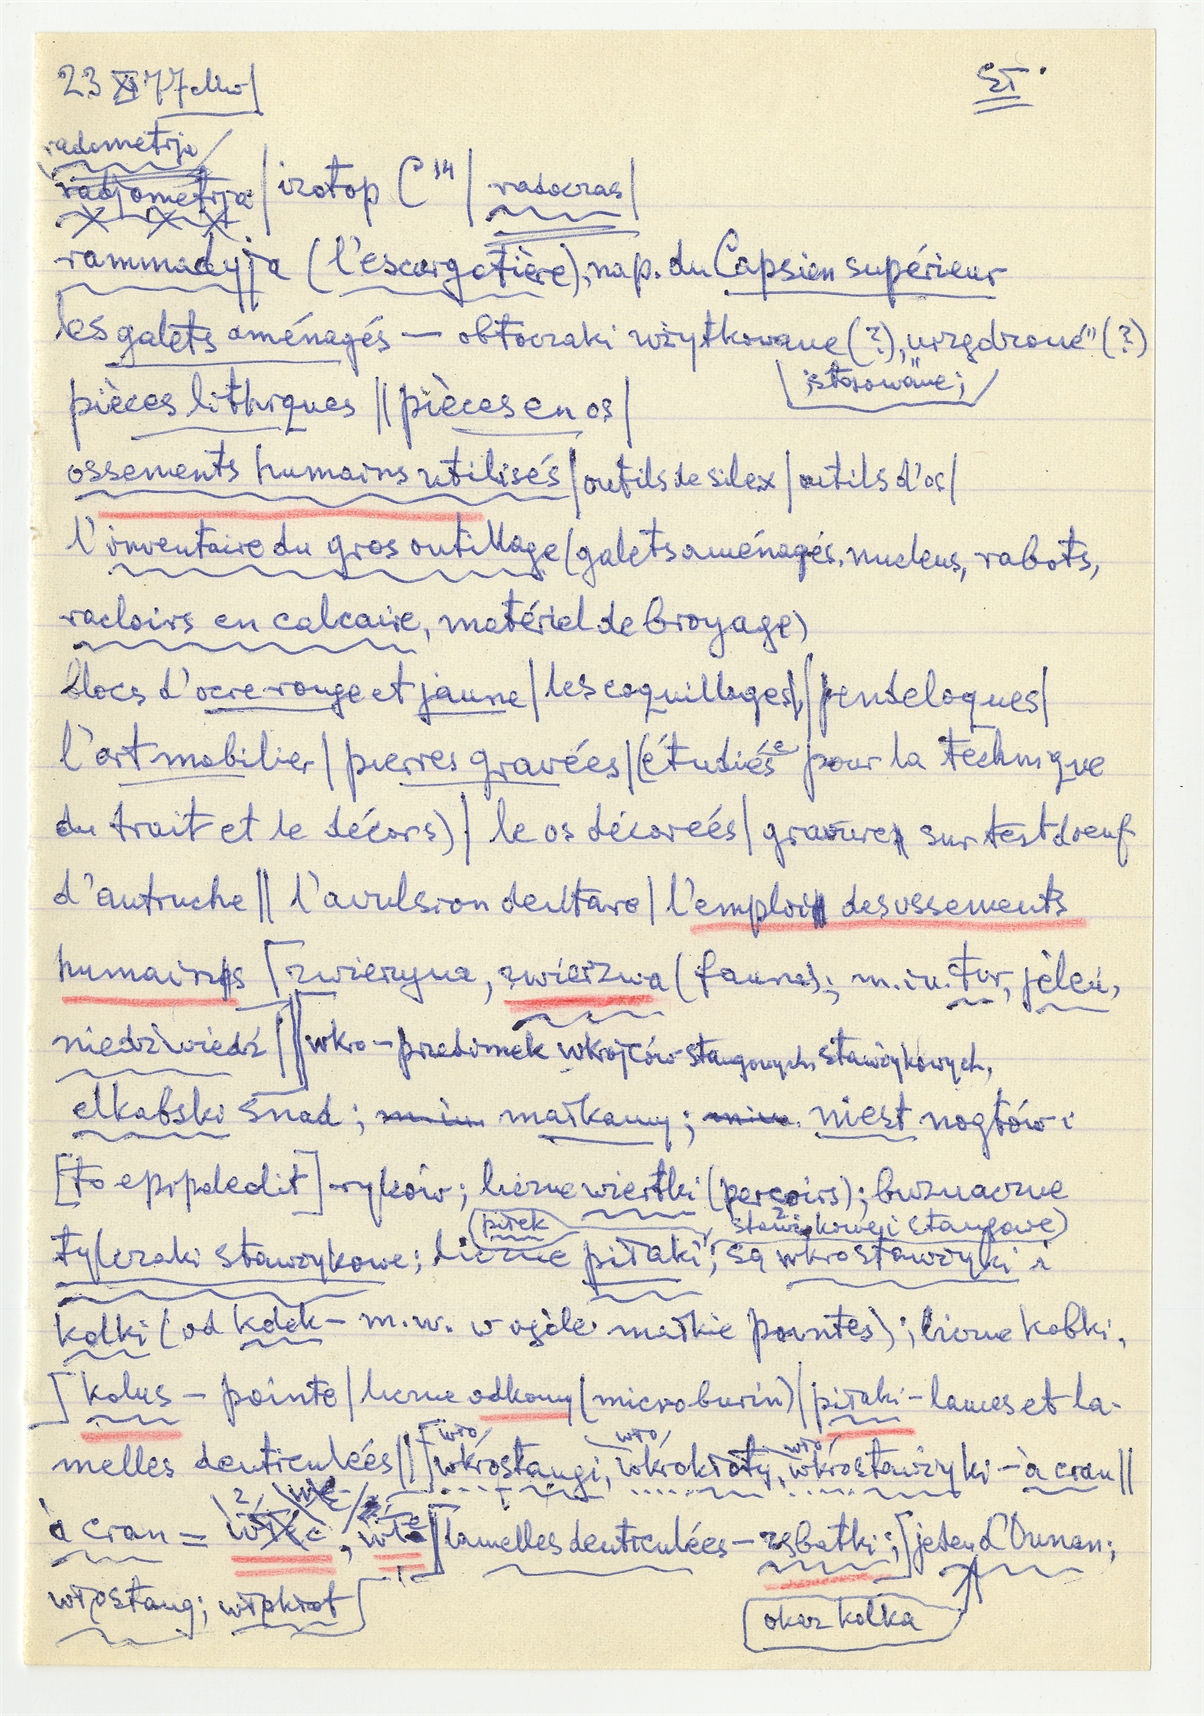 23 XI 77
radometrja
radjometrja | izotop C14 | radoczas |
rammadyja (l'escargotière), nap. du Capsien supérieur
les galets aménagés — obtoczaki użytkowane (?), „urządzone" (?)
pièces lithiques || pièces en os |
ossements humains utilisés | outils de silex | outils d'os |
l'inventaire du gros outillage (galets aménagés, nucleus, rabots,
racloirs en calcaire, matériel de broyage)
blocs d'ocre rouge et jaune | les coquillages | pendeloques |
l'art mobilier | pierres gravées | (étudiés pour la technique
du trait et le décors) | le os décoreés | gravure sur test d'oeuf
d'autruche || l'avulsion dentare | l'emploi des ossements
humains [zwierzyna, zwierzwa (fauna); m.in. tur, jeleń,
niedźwiedź || wkro – przedimek wkrojców stangowych, stawżykowych,
elkabski snad; m.in. małkamy; niest nogtów i
[to epipaleolit] -ryków; liczne wiertki (perçoirs);
(piłek stawżykowe i stangowe)
tylczaki stawżykowe; liczne piłaki; są wkrostawżyki i
kolki (od kolek – m.w. w ogóle małkie pointes); liczne kolki,
kolus – pointe | liczne odkomy (microburin) | piłaki – lames et la-
melles denticulées || wkrostangi, wkrokłoty, wkrostawżyki – à cran ||
à cran = | lamelles denticulées – ząbatki; jeden d'Ounan;
włostang; włokłot
okaz kolka